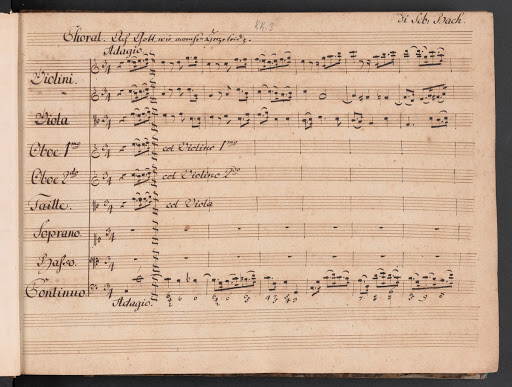 Di Seb. Bach.
Choral. Ach Gott, wie manches Herzeleid
Adagio
Violini.
Viola
Oboe 1mo col Violino 1mo
Oboe 2do col Violino 2do
Taille. col Viola
Soprano
Basso.
Continuo
Adagio.